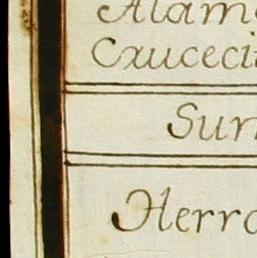 Alam
Cxuceci
Sur
Herr